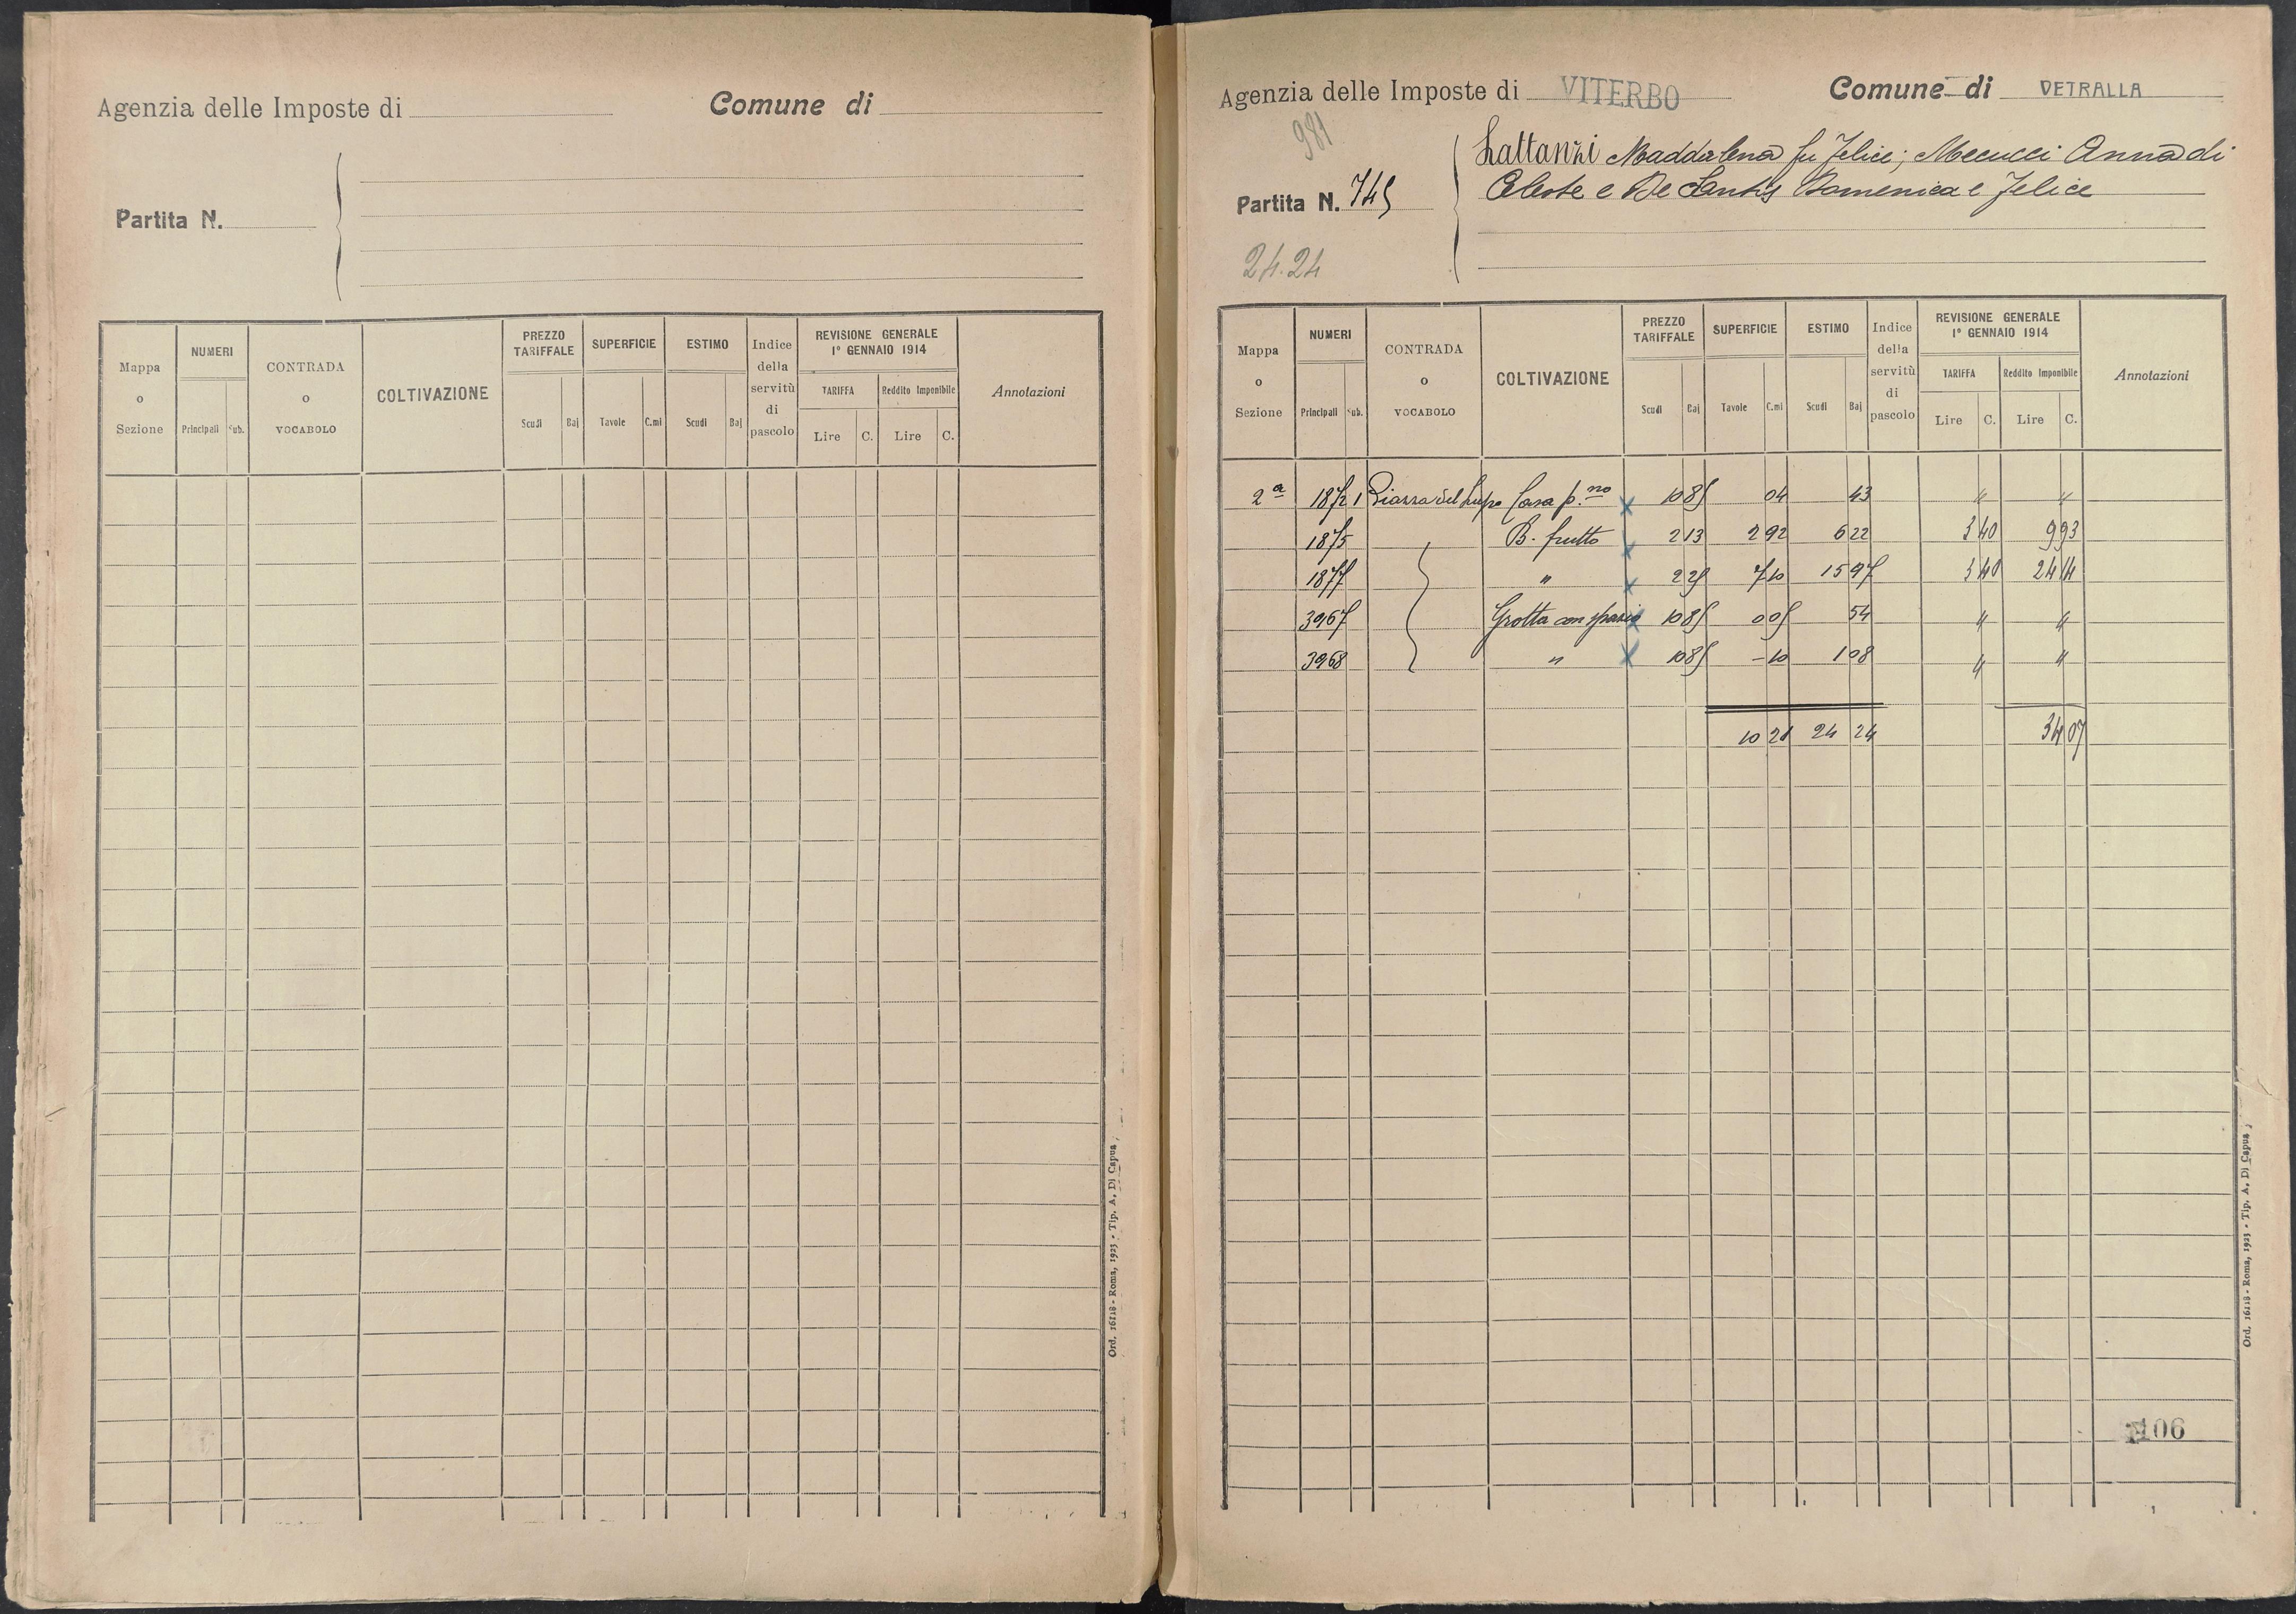 Agenzia delle Imposte di
Comune di
Partita N.
Mappa o Sezione
NUMERI
Principali
Sub.
CONTRADA o VOCABOLO
COLTIVAZIONE
PREZZO TARIFFALE
Scudi
Baj
SUPERFICIE
Tavole
C.mi
ESTIMO
Scudi
Baj
Indice della servitù di pascolo
REVISIONE GENERALE
1° GENNAIO 1914
TARIFFA
Reddito Imponibile
Lire
C.
Lire
C.
Annotazioni
Ord. 16118 - Roma, 1923 - Tip. A. Di Capua
Agenzia delle Imposte di VITERBO
Comune di VETRALLA
981
Partita N. 745
24.24
Lattanzi Maddalena fu Felice; Mecucci Anna di
Celeste e De Santis Domenica e Felice
Mappa o Sezione
NUMERI
Principali
Sub.
CONTRADA o VOCABOLO
COLTIVAZIONE
PREZZO TARIFFALE
Scudi
Baj
SUPERFICIE
Tavole
C.mi
ESTIMO
Scudi
Baj
Indice della servitù di pascolo
REVISIONE GENERALE
1° GENNAIO 1914
TARIFFA
Reddito Imponibile
Lire
C.
Lire
C.
Annotazioni
2ª 1872 1 Piazza del Lupo Casa p.no x 10 85 04 43 " "
1875 B. frutto x 2 13 2 92 6 22 3 40 9 93
1877 " x 2 25 7 10 15 97 3 40 24 14
3967 Grotta con spazio x 10 85 0 05 54 " "
3968 " x 10 85 - 10 1 08 " "
10 21 24 24 34 07
106
Ord. 16118 - Roma, 1923 - Tip. A. Di Capua